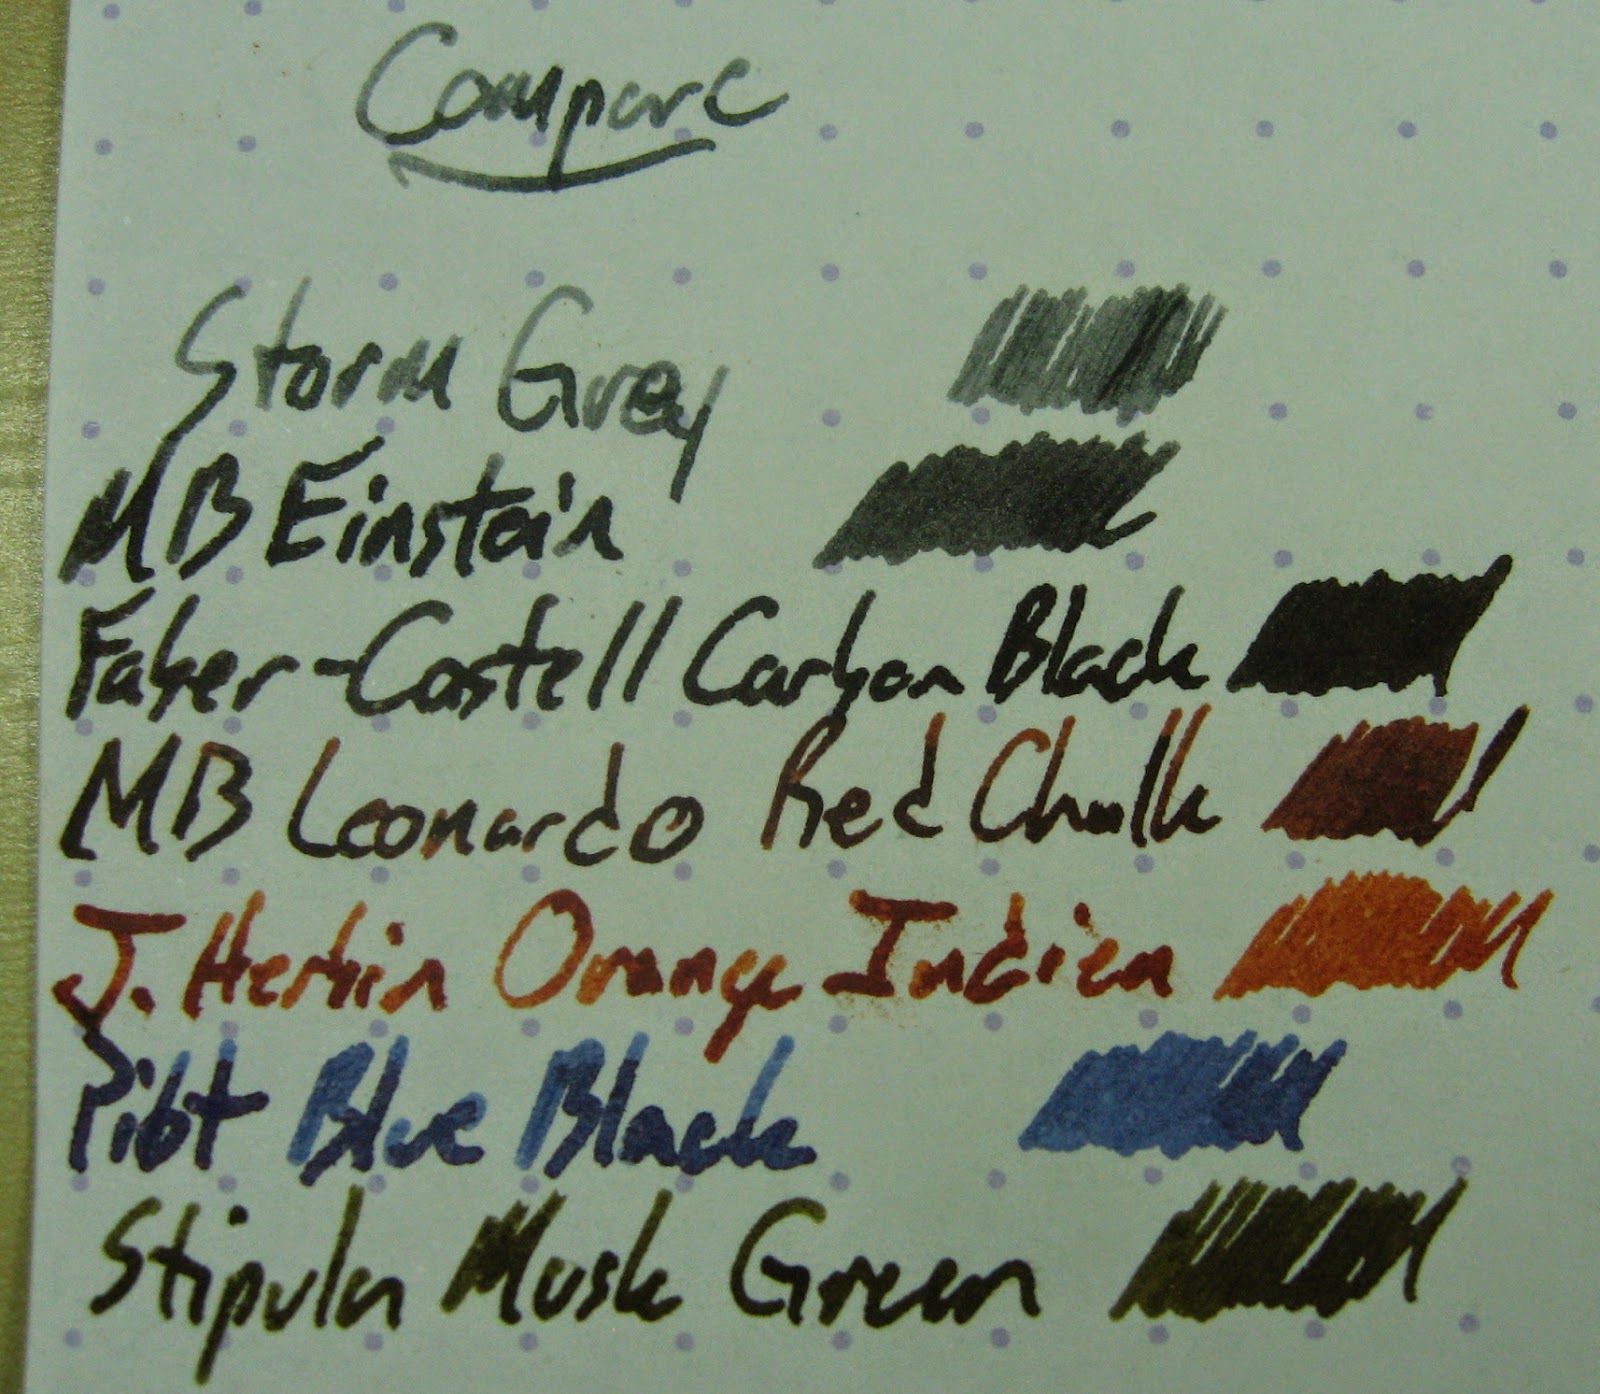 Compare
Storm Grey
MB Einstein
Faber-Castell Carbon Black
MB Leonardo Red Chalk
J. Herbin Orange Indien
Pilot Blue Black
Stipula Musk Green